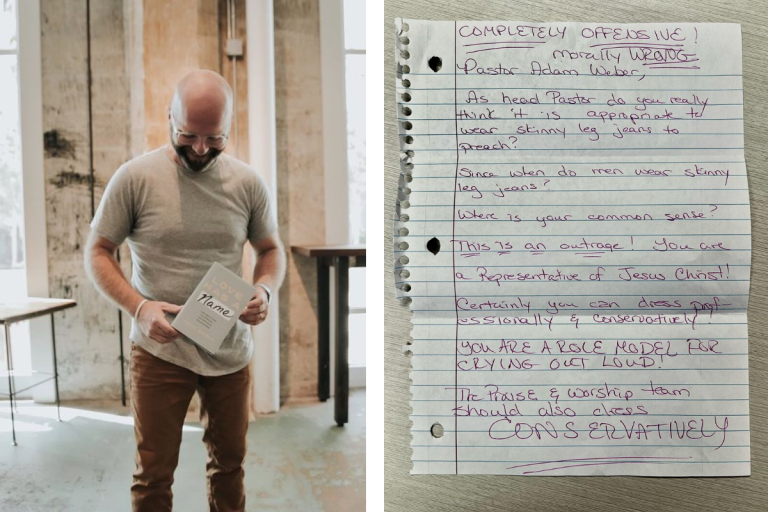 LOVE
Name
COMPLETELY OFFENSIVE!
morally WRONG
Pastor Adam Weber,
As head Pastor do you really
think it is appropriate to
wear skinny leg jeans to
preach?
Since when do men wear skinny
leg jeans?
Where is your common sense?
This is an outrage! You are
a Representative of Jesus Christ!
Certainly you can dress prof-
essionally & conservatively!
YOU ARE A ROLE MODEL FOR
CRYING OUT LOUD!
The Praise & Worship team
should also dress
CONSERVATIVELY